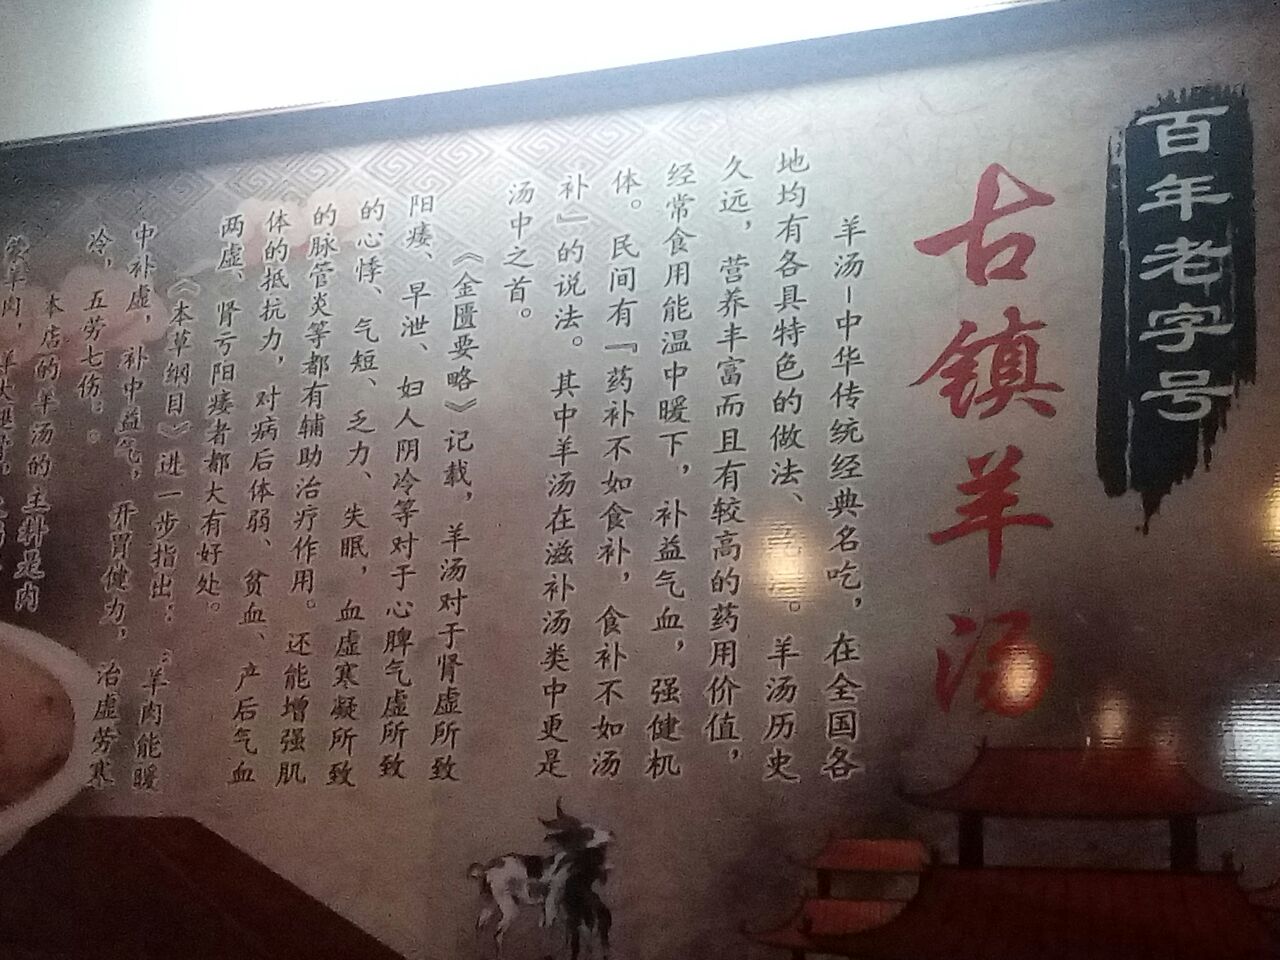 百年老字号
古镇羊汤
羊汤－中华传统经典名吃，在全国各
地均有各具特色的做法、。羊汤历史
久远，营养丰富而且有较高的药用价值，
经常食用能温中暖下，补益气血，强健机
体。民间有『药补不如食补，食补不如汤
补』的说法。其中羊汤在滋补汤类中更是
汤中之首。
《金匮要略》记载，羊汤对于肾虚所致
阳痿、早泄、妇人阴冷等对于心脾气虚所致
的心悸、气短、乏力、失眠，血虚寒凝所致
的脉管炎等都有辅助治疗作用。还能增强肌
体的抵抗力，对病后体弱、贫血、产后气血
两虚、肾亏阳痿者都大有好处。
《本草纲目》进一步指出：“羊肉能暖
中补虚，补中益气，开胃健力，治虚劳寒
冷，五劳七伤：。
本店的羊汤的主料是肉
羊肉，羊大腿骨，